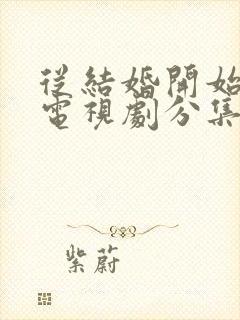 從結婚開始
電視劇分集
紫蔚